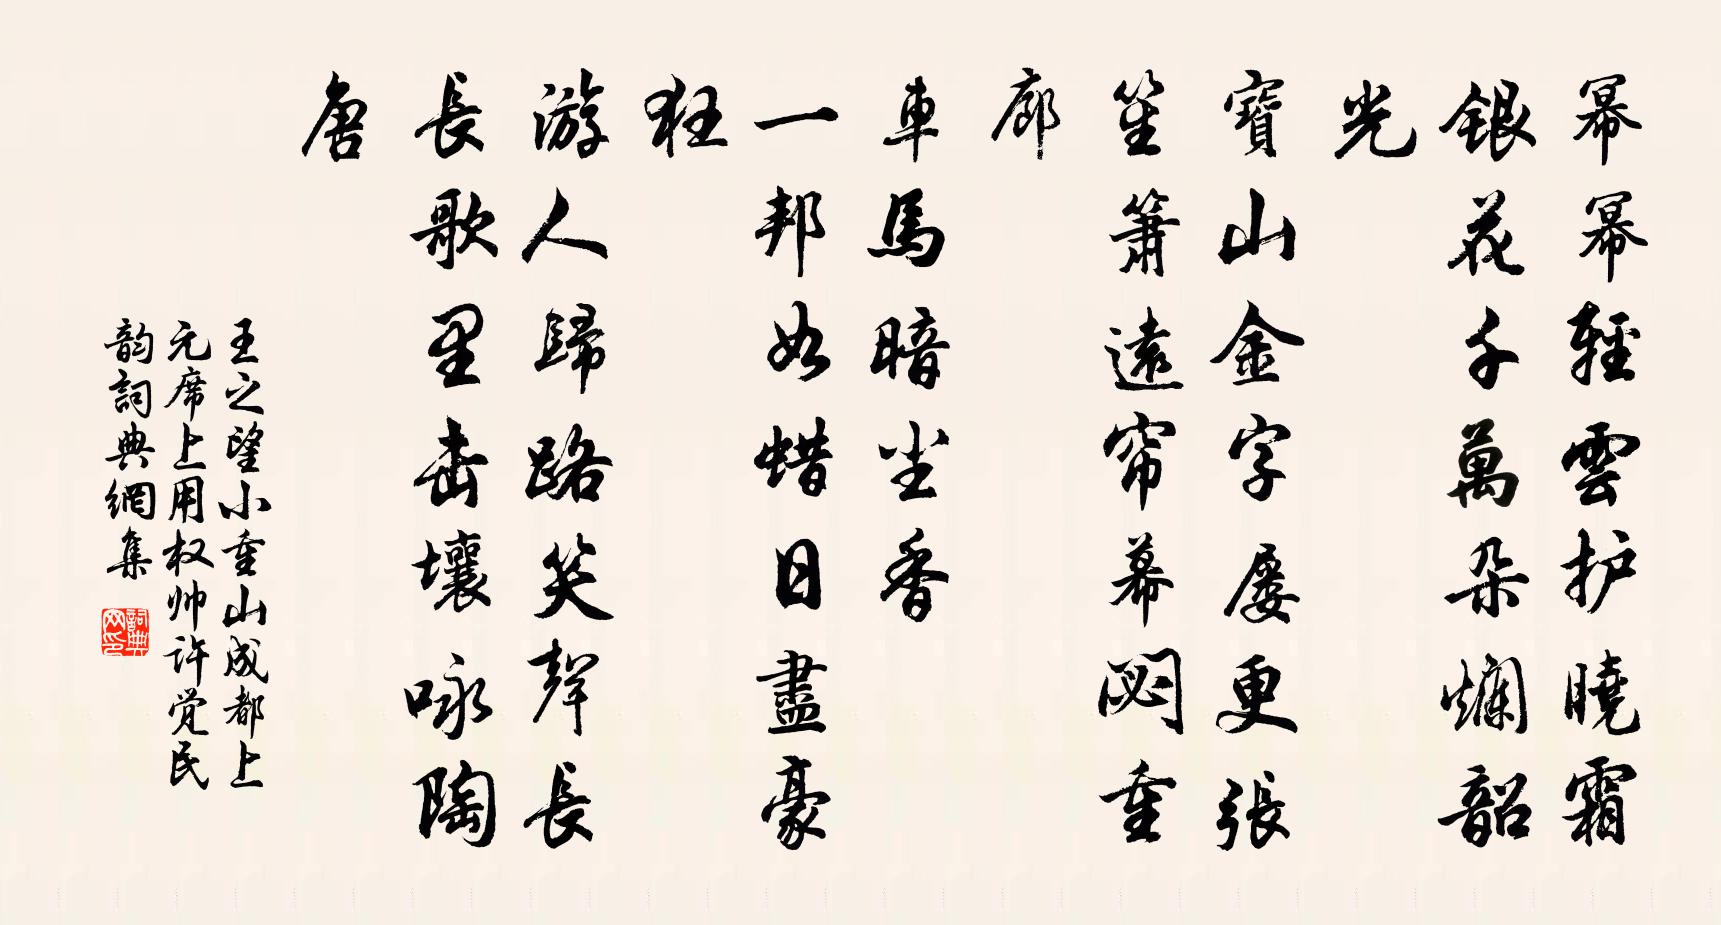 幂幂輕雲护曉霜
銀花千萬朵爛韶
光
寶山金字屡更張
笙簫遠帘幕閟重
廊
車馬暗尘香
一邦如蜡日盡豪
狂
游人歸路笑聲長
長歌里击壤咏陶
唐
王之望小重山成都上
元席上用权帅许觉民
韵詞典網集
詞典
网印